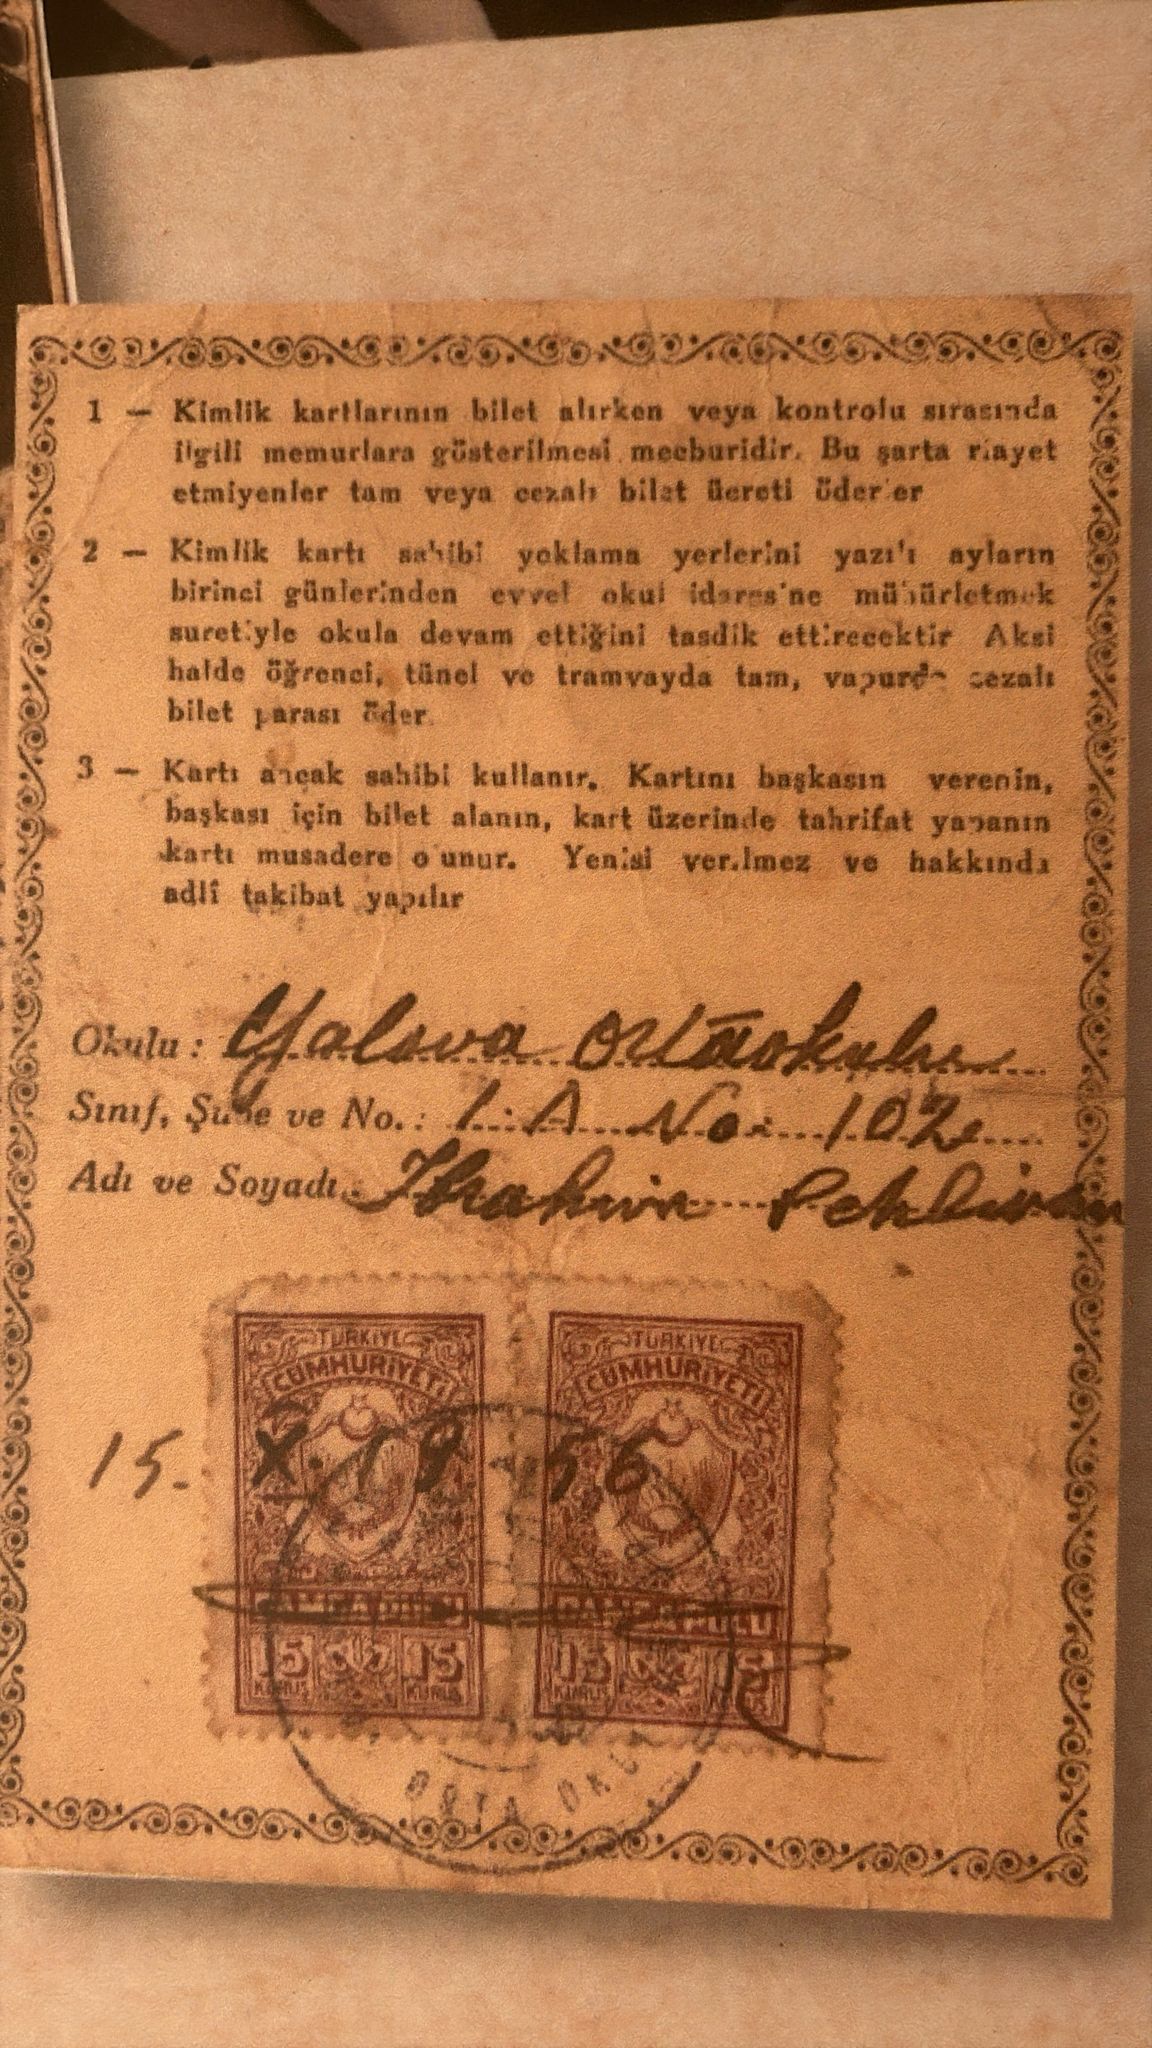 1 — Kimlik kartlarının bilet alırken veya kontrolu sırasında
ilgili memurlara gösterilmesi mecburidir. Bu şarta riayet
etmiyenler tam veya cezalı bilet ücreti öderler
2 — Kimlik kartı sahibi yoklama yerlerini yazılı ayların
birinci günlerinden evvel okul idaresine mühürletmek
suretiyle okula devam ettiğini tasdik ettirecektir Aksi
halde öğrenci, tünel ve tramvayda tam, vapurda cezalı
bilet parası öder.
3 — Kartı ancak sahibi kullanır. Kartını başkasın verenin,
başkası için bilet alanın, kart üzerinde tahrifat yapanın
kartı musadere olunur. Yenisi verilmez ve hakkında
adlî takibat yapılır
Okulu: Yalova Ortaokulu
Sınıf, Şube ve No.: 1. A No: 102
Adı ve Soyadı: İbrahim Pehlivan
TÜRKİYE TÜRKİYE
CUMHURİYETİ CUMHURİYETİ
15. X. 1956
DAMGA PULU DAMGA PULU
15 15 15 15
KURUŞ KURUŞ KURUŞ
ORTA OKU